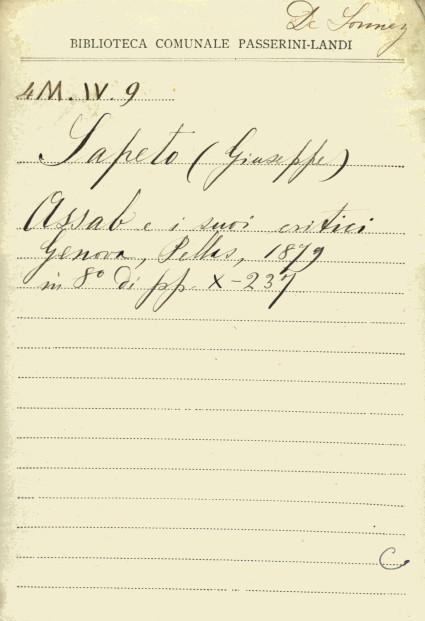 De
BIBLIOTECA COMUNALE PASSERINI-LANDI
4M. IV. 9
Sapeto (Giuseppe)
Assab e i suoi critici
Genova, Pellas, 1879
in 8º di pp. X-237
C